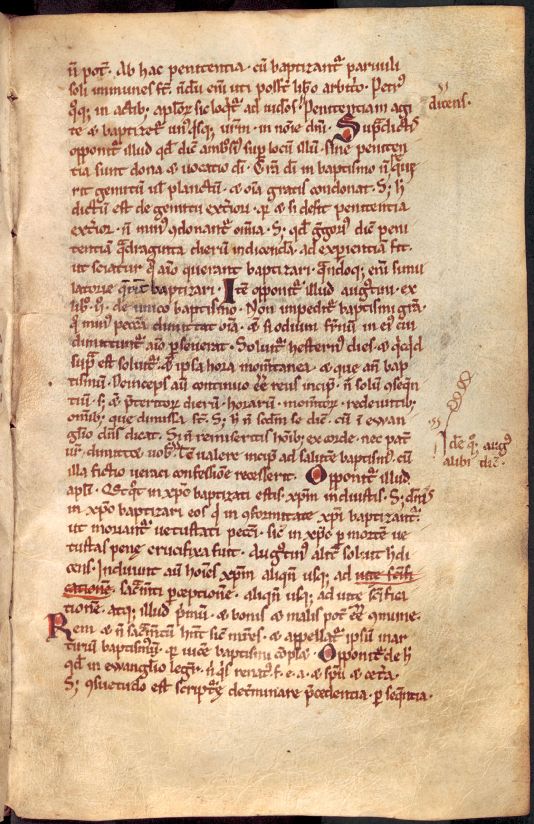 n̄ pot̄. Ab hac penitentia. cū baptizant᷑ paruuli
soli immunes st̄. n̄dū em̄ uti poss̄t lib̄o arbit̄o. Petrꝰ
qꝫ in actibꝫ ap̄lor᷑ sic loq̄t᷑ ad iudeos. Penitentiam agi
dicens.
te ⁊ baptizet᷑ unꝰqsqꝫ ur̄m. in noīe dn̄i. Sup̄dictis
opponit᷑ illud qd̄ dic̄ ambs̄i sup locū illū. sine peniten
tia sunt dona ⁊ uocatio di. Gr̄a di in baptismo n̄ que
rit gemitū ul̓ planctū. ⁊ oīa gratis condonat. Sꝫ h̄
dictū est de gemitu ext̄iori. ꝗ ⁊ si desit penitentia
ext̄ior. n̄ minꝰ ꝯdonant᷑ omīa. Sꝫ qd̄ g̓gori᷒ dic̄ peni
tentiā q̄draginta dierū indicendā. ad expientiā fit.
ut sciatur q̓ aīo querant baptizari. q̄ndoqꝫ em̄ simu
latorie q̄rit᷑ baptizari. Itē opponit᷑ illud augtini. ex
lib̓. de unico baptismo. Non impedit᷑ baptismi gr̄a.
q̓ minꝰ pccā dimittat oīa. ⁊ si odium fr̄nū in eiꝰ cui
dimittunt᷑ aīo p̱seuerat. Soluit᷑ hesternꝰ dies. ⁊ q̓cq̓d
sup̄ est soluit᷑. ⁊ ipsa hora mom̄tanea. ⁊ que an̄ bap
tismū. Deinceps aū continuo ēē reus incip̄. n̄ solū ꝯseq̄n
tiū. sꝫ ⁊ p̄teritor᷑ dierū. horarū. momtor᷑. redeuntibꝫ
omībꝫ. que dimissa st̄. Sꝫ h̄ n̄ scdm̄ se dic̄. cū ī ewan
glio dn̄s dicat. Si n̄ remiseritis hoībꝫ ex corde. nec pat̄
ur̄. dimittet uob̄. Tē̄ ualere incip̄ ad salutē baptism̄. cū
Idē qꝫ augꝰ
alibi dic̄.
illa fictio ueraci confessione recesserit. Opponit᷑ illud
ap̄li. Q̓tq̓t in xp̄o baptizati estis. xp̄m induistis. Sꝫ dr̄
in xp̄o baptizari eos q̓ in ꝯformitate xp̄i baptizant᷑.
ut moriant᷑ uetustati pecc̄i. sic̄ in xp̄o p̱ mortem ue
tustas pene crucifixa fuit. Augtinꝰ alit̄ soluit h̄. di
cens. Induunt aū hoīes xp̄m aliqn̄ usqꝫ ad uite sc̄ifi
cationē. sacm̄ti pceptionē. aliqn̄ usqꝫ ad uite sc̄ifica
tionē. atqꝫ illud p̓mū. ⁊ bonis ⁊ malis pot̄ ēē ꝯmune.
Rem ⁊ n̄ sacm̄tū hn̄t sic̄ mr̄es. ⁊ appellat᷑ ipsū mar
tiriū baptismꝰ. p̱ uicē baptismi ꝯp̄lere. Opponit᷑ de h̄
qd̄ in ewanglio legit᷑. n̄ q̓s renatꝰ. f. e. a. ⁊ sp̄u ⁊ cet̄a.
Sꝫ ꝯsuetudo est script᷑e det̄minare p̄cedentia. p̱ seq̄ntia.